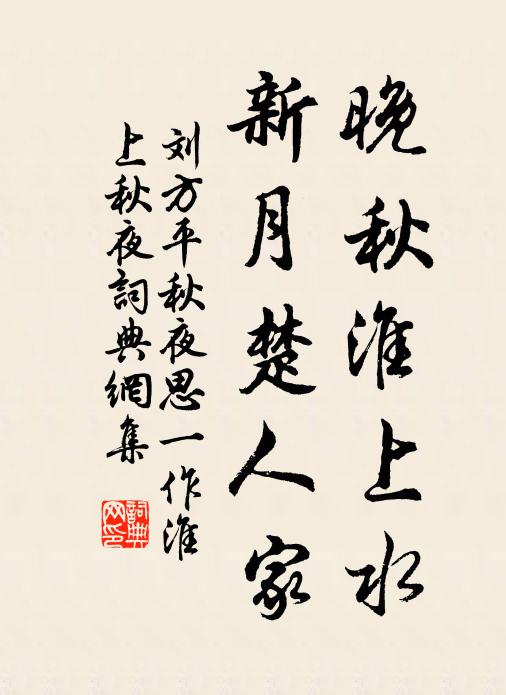 晚秋淮上水
新月楚人家
刘方平秋夜思一作淮
上秋夜詞典網集
詞典网印